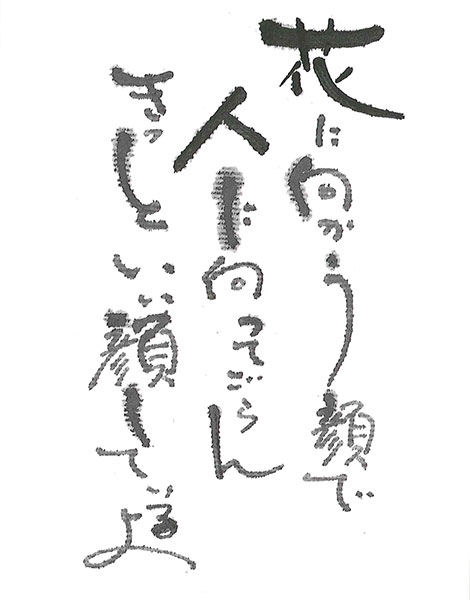 花に向かう顔で
人に向ってごらん
きっといい顔しているよ